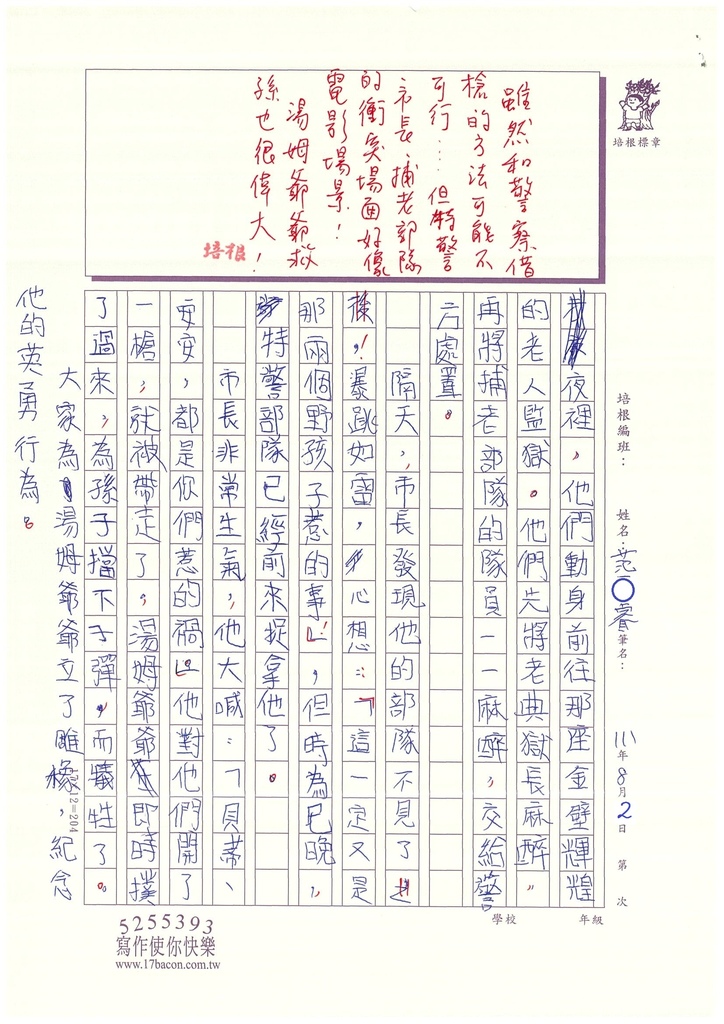 雖然和警察借
槍的方法可能不
可行…但特警
市長、捕老部隊
的衝突場面好像
電影場景!
湯姆爺爺救
孫也很偉大!
培根
培根標章
培根編班:
姓名:范○睿
筆名:
111年8月2日 第 次
學校
年級
夜裡,他們動身前往那座金壁輝煌
的老人監獄。他們先將老典獄長麻醉,
再將捕老部隊的隊員一一麻醉,交給警
方處置。
隔天,市長發現他的部隊不見了
後,暴跳如雷,心想:「這一定又是
那兩個野孩子惹的事!」,但時為已晚,
特警部隊已經前來捉拿他了。
市長非常生氣,他大喊:「貝蒂、
安安,都是你們惹的禍!」他對他們開了
一槍,就被帶走了,湯姆爺爺即時撲
了過來,為孫子擋下子彈,而犠牲了。
大家為湯姆爺爺立了雕橡,紀念
他的英勇行為。
17×12=204
5255393
寫作使你快樂
www.17bacon.com.tw